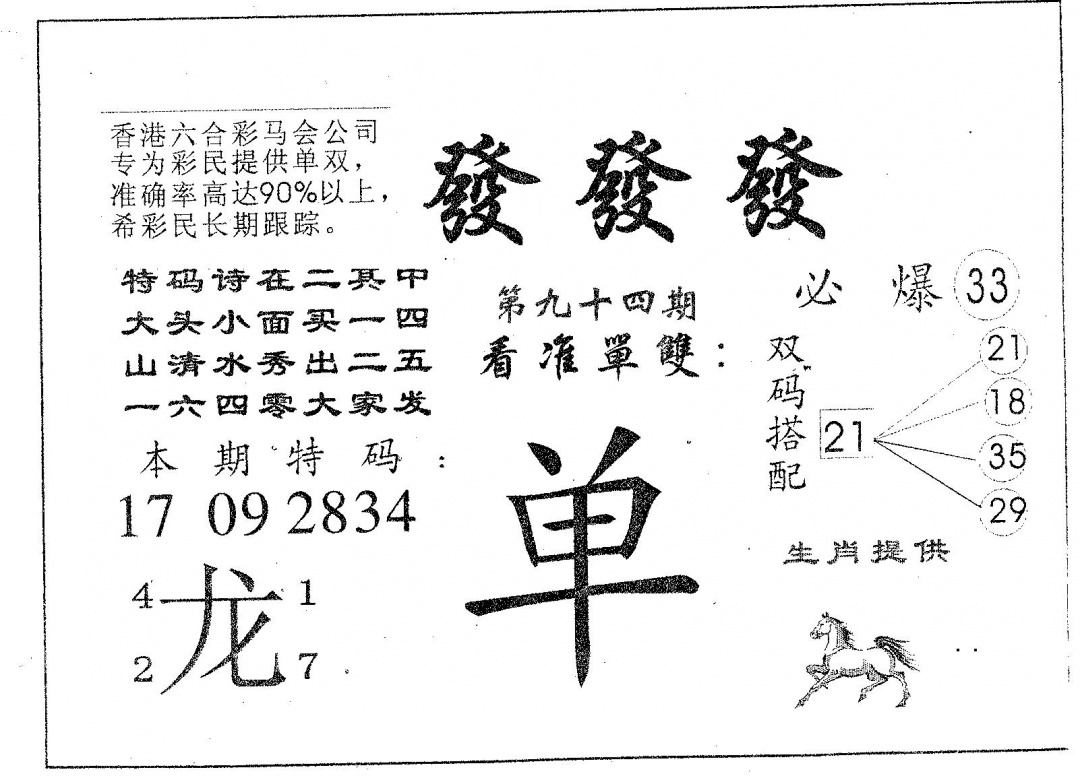 香港六合彩马会公司
专为彩民提供单双，
准确率高达90%以上，
希彩民长期跟踪。
發 發 發
特码诗在二其中
大头小面买一四
山清水秀出二五
一六四零大家发
本期特码：
17 09 2834
4 龙 1
2 7
第九十四期
看准單雙：
单
必 爆 33
双码搭配
21
21
18
35
29
生肖提供